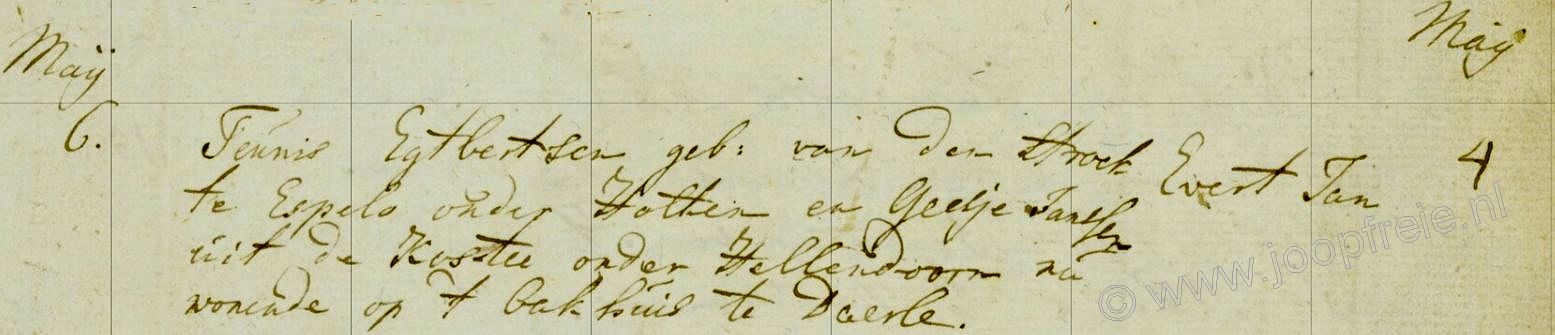 Maij Maij
6. Teunis Egtbertsen geb: van den Stroek Evert Jan 4
te Espelo onder Holten en Geesje Janssen
uit de Kostee onder Hellendoorn nu
wonende op 't bakhuis te Daerle.
© www.joopfreie.nl